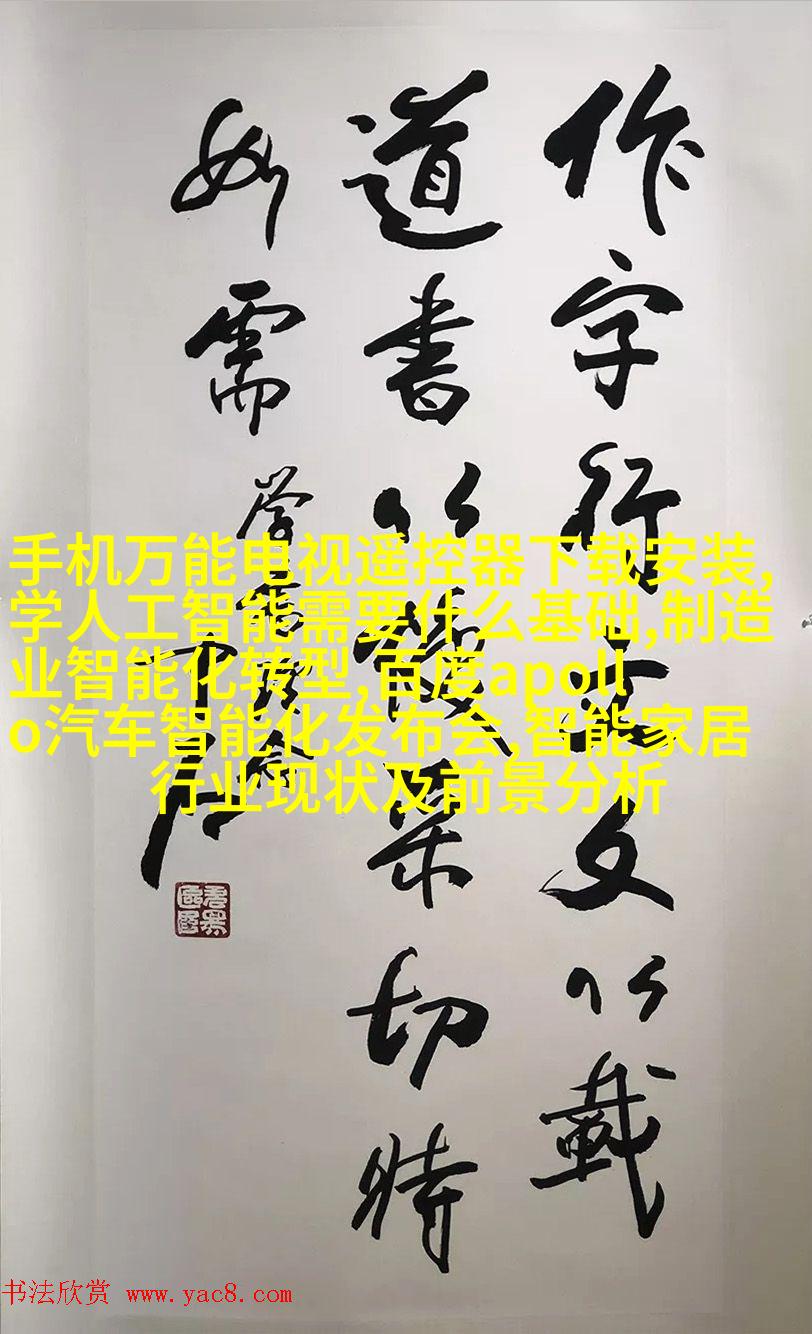 作字行文文以載
道書以煥采切時
如需
中石
手机万能电视遥控器下载安装,
学人工智能需要什么基础,制造
业智能化转型,百度apoll
o汽车智能化发布会,智能家居
行业现状及前景分析
书法欣赏 www.yac8.com